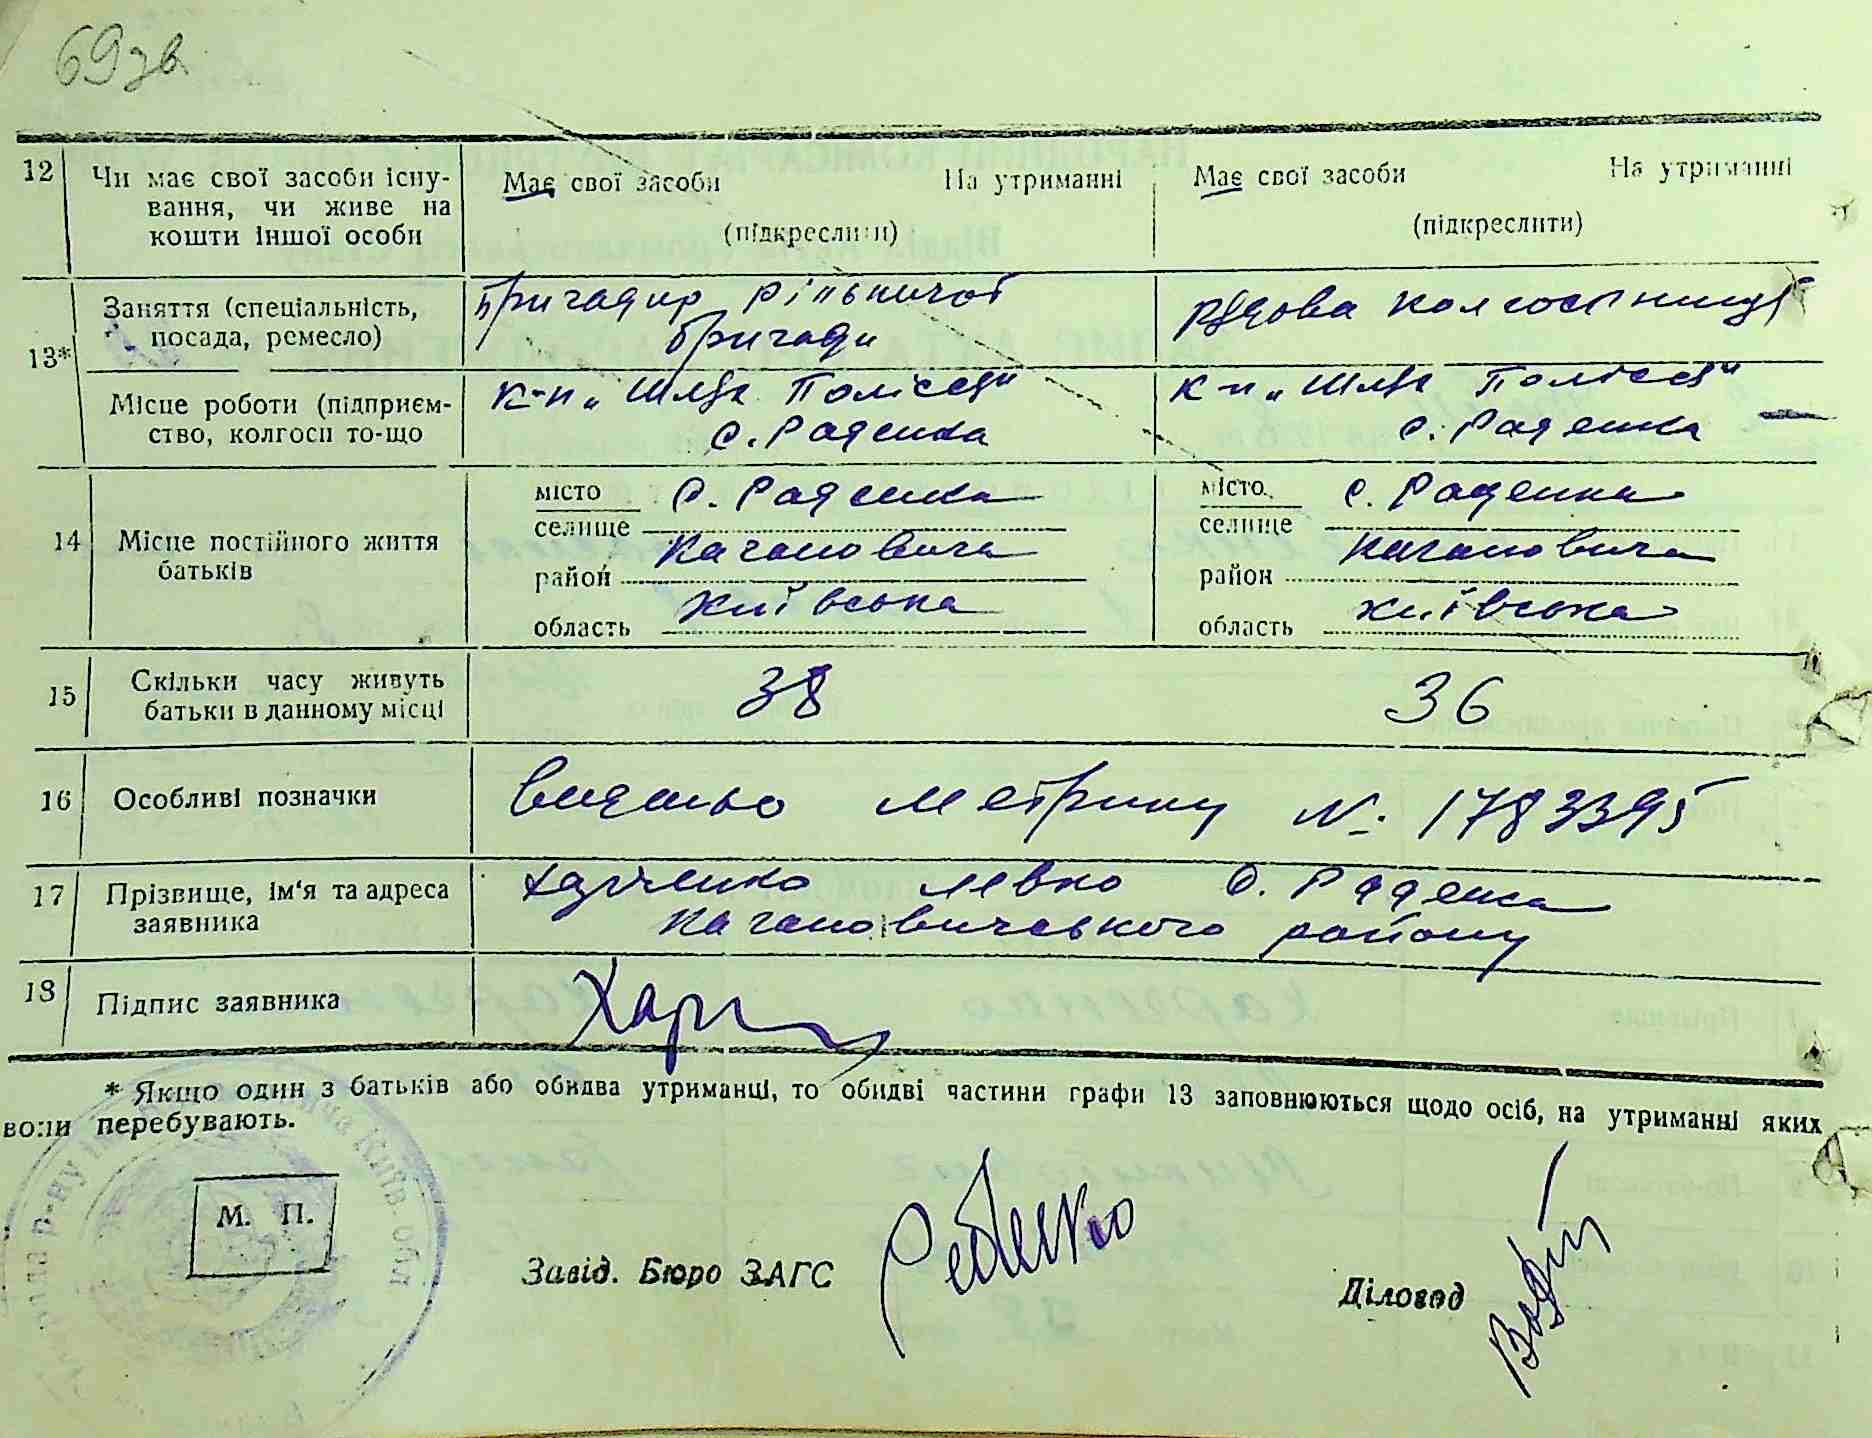 69зв
12 Чи має свої засоби існу-
вання, чи живе на
кошти іншої особи
Має свої засоби На утриманні
(підкреслити)
Має свої засоби На утриманні
(підкреслити)
13* Заняття (спеціальність,
посада, ремесло)
Бригадир рільничої
бригади
Рядова колгоспниця
Місце роботи (підприєм-
ство, колгосп то-що
к-п „Шлях Полісся"
с. Раденка
к-п „Шлях Полісся"
с. Раденка
14 Місце постійного життя
батьків
місто с. Раденка
селище
район Кагановича
область Київська
місто с. Раденка
селище
район Кагановича
область Київська
15 Скільки часу живуть
батьки в данному місці
38
36
16 Особливі позначки
Видано метрику №. 1783395
17 Прізвище, ім'я та адреса
заявника
Харченко Левко с. Раденка
Кагановичського району
18 Підпис заявника
Хар
* Якщо один з батьків або обидва утриманці, то обидві частини графи 13 заповнюються щодо осіб, на утриманні яких
вони перебувають.
М. П.
Завід. Бюро ЗАГС
Діловод